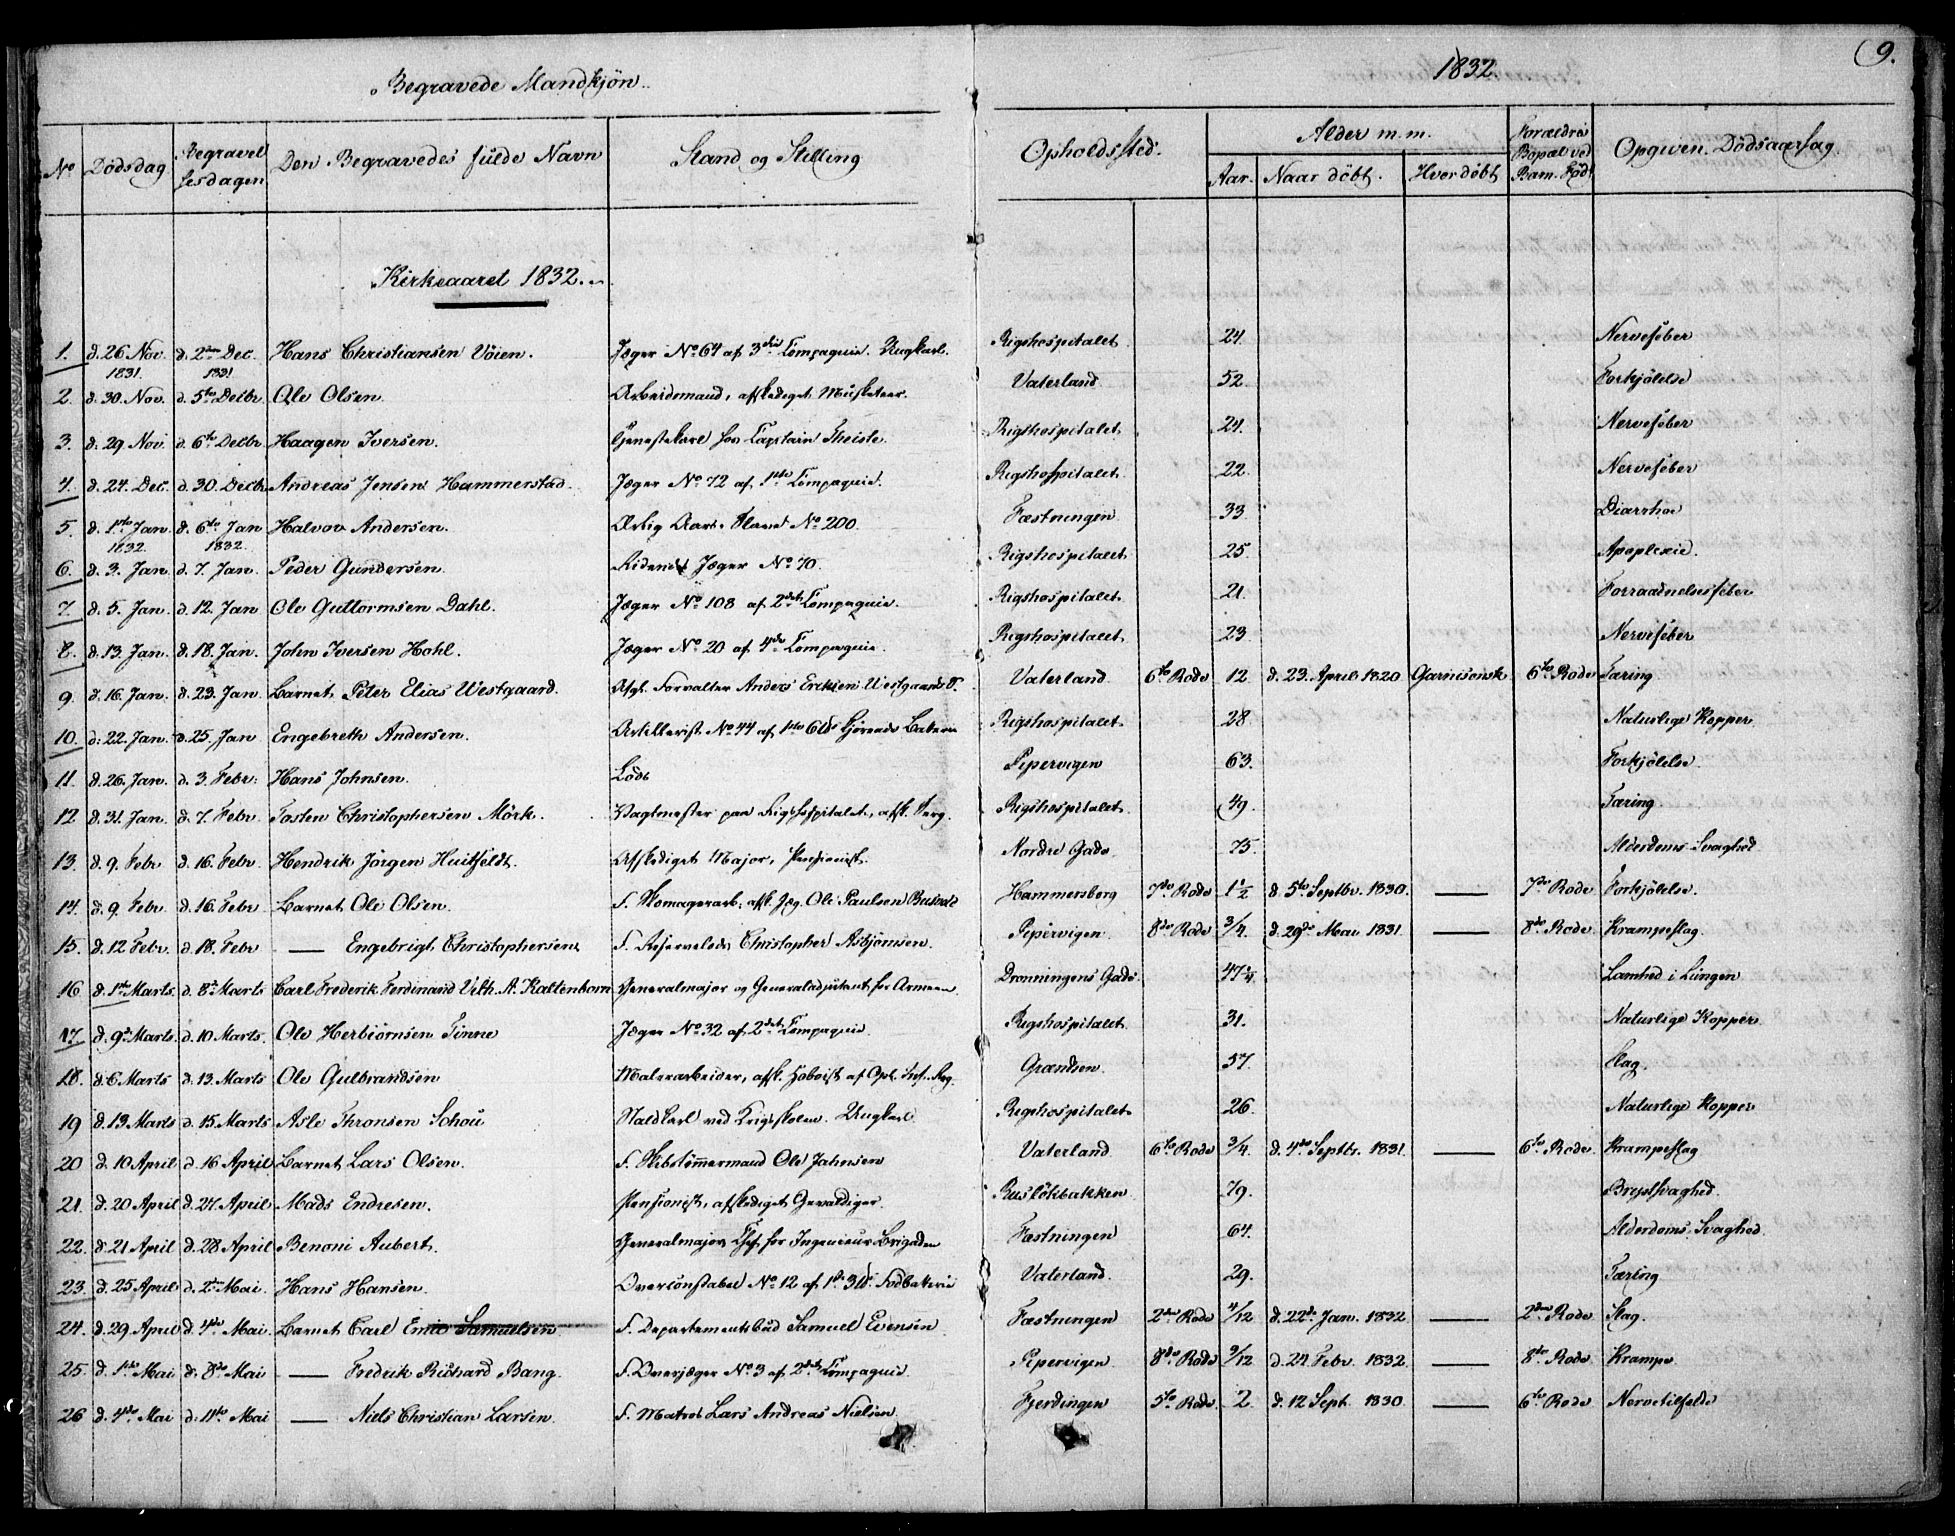 Begravede Mandkjön.
1832.
9.
No Dödsdag Begravelsesdagen Den Begravedes fulde Navn Stand og Stilling Opholdssted. Alder m. m. Aar. Naar döbt. Hvor döbt Forældres Bopæl ved Barn. Föd. Opgiven Dödsaarsag.
Kirkeaaret 1832.
1. d. 26 Nov. 1831. d. 2den Dec. 1831 Hans Christiansen Vöien. Jæger No 64 af 3die Compagnie. Ungkarl. Rigshospitalet 24. Nervefeber
2. d. 30. Nov. d. 5te Decbr. Ole Olsen. Arbeidsmand, afskediget Musketeer. Vaterland 52. Forkjölelse
3. d. 29. Nov. d. 6te Decbr. Haagen Iversen. Tjenestekarl hos Captain Theiste. Rigshospitalet 24. Nervefeber
4. d. 24. Dec. d. 30. Decbr Andreas Jensen Hammerstad. Jæger No 72 af 1ste Compagnie. Rigshospitalet 22. Nervefeber
5. d. 1ste Jan. 1832. d. 6te Jan 1832. Halvor Andersen. No 200. Fæstningen 33. Diarrhoe
6. d. 3. Jan. d. 7. Jan. Peder Gundersen. Ridende Jæger No 70. Rigshospitalet 25. Apoplexie.
7. d. 5. Jan. d. 12. Jan Ole Guttormsen Dahl. Jæger No 108 af 2det Compagnie. Rigshospitalet 21. Forraadnelsesfeber
8. d. 13. Jan. d. 18. Jan. John Iversen Hohl. Jæger No 20 af 4de Compagnie. Rigshospitalet 23. Nervefeber
9. d. 16. Jan. d. 23. Jan Barnet Peter Elias Westgaard. Afg. Forvalter Anders Ericksen Westgaards S. Vaterland 6te Rode 12 d. 23. April 1820 Garnisonsk. 6te Rode Tæring
10. d. 22. Jan. d. 25. Jan Engebreth Andersen. Artillerist No 44 af 1ste 6 kjörende Batterie Rigshospitalet 28. Naturlige Kopper
11. d. 26. Jan. d. 3. Febr. Hans Johnsen. Lods Pipervigen 63. Forkjölelse.
12 d. 31. Jan. d. 7. Febr. Tosten Christophersen Mörk. Vagtmester paa Rigshospitalet, afsk. Serg. Rigshospitalet 49. Tæring
13. d. 9. Febr d. 16. Febr. Hendrik Jörgen Huitfeldt. Afskediget Major, Pensionist. Nordre Gade. 75. Alderdoms-Svaghed
14. d. 9. Febr. d. 16. Febr Barnet Ole Olsen. F. Skomagerarb. afsk. Jæg. Ole Paulsen Hammersborg 7de Rode 1 1/2 d. 5te Septbr. 1830. — 7de Rode Forkjölelse.
15. d. 12 Febr. d. 18. Febr — Engebrigt Christophersen F. Reservelods Christopher Asbjörnsen. Pipervigen 8de Rode 3/4. d. 29de Mai 1831. — 8de Rode Krampeslag.
16 d. 1ste Marts. d. 8de Marts Carl Frederik Ferdinand Vilh. A. Kaltenborn Generalmajor og Generaladjutant for Armeen. Dronningens Gade. 47 3/4 Lamhed i Lungen
17. d. 9de Marts. d. 10 Marts. Ole Herbiörnsen Tinne Jæger No 32 af 2det Compagnie Rigshospitalet 31. Naturlige Kopper
18. d. 6 Marts d. 13. Marts Ole Gulbrandsen Malerarbeider, afsk. Hoboist af Opl. Inf. Reg. Grændsen 57. Slag.
19 d. 13. Marts d. 15. Marts Asle Thronsen Schou Staldkarl ved Krigsskolen. Ungkarl Rigshospitalet 26. Naturlige Kopper
20 d. 10 April d. 16 April Barnet Lars Olsen. F. Skibstömmermand Ole Jahnsen Vaterland 6te Rode 3/4. d. 4de Septbr. 1831. — 6te Rode Krampeslag
21. d. 20 April d. 27. April Mads Endresen. Pensionist, afskediget Gevaldiger. Ruslökbakken 79. Brystsvaghed.
22. d. 21 April d. 28 April Benoni Aubert. Generalmajor, Chef for Ingenieur Brigaden Fæstningen 64. Alderdoms-Svaghed.
23. d. 25 April d. 2den Mai. Hans Hansen. Overconstabel No 12 af 1ste 3 Fodbatterie Vaterland. 29. Tæring
24. d. 29 April d. 4de Mai Barnet Carl Emil Samuelsen F. Departementsbud Samuel Evensen Fæstningen 2den Rode 4/12 d. 22de Jan. 1832 — 2den Rode Slag.
25. d. 1ste Mai d. 8de Mai — Fredrik Richard Bang. F. Overjæger No 3 af 2det Compagnie. Pipervigen 8de Rode 3/12 d. 24 Febr. 1832. — 8de Rode Krampe
26 d. 4de Mai d. 11te Mai — Niels Christian Larsen. F. Matros Lars Andreas Nielsen Fjerdingen 5te Rode 2 d. 12 Sept. 1830. — 6te Rode Nervetilfælde